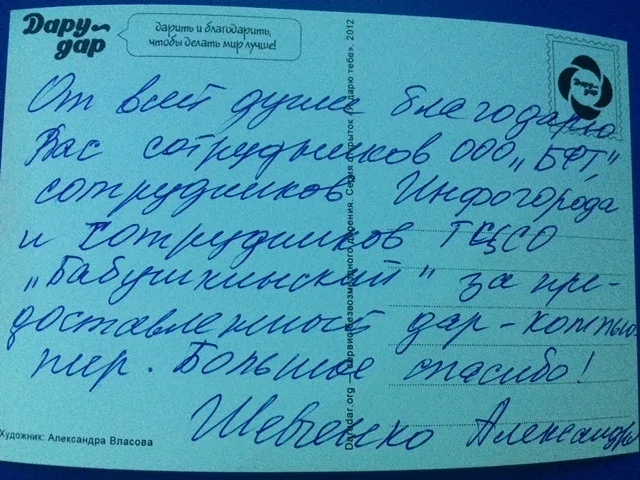 Дару~
дар
дарить и благодарить,
чтобы делать мир лучше!
Дару
дар
От всей души благодарю
Вас сотрудников ООО „БФТ"
сотрудников Инфогорода
и сотрудников ТЦСО
„Бабушкинский" за пре-
доставленный дар-компью
тер. Большое спасибо!
Шевченко Александра
Художник: Александра Власова
Darudar.org — сервис безвозмездного дарения. Серия открыток «Я дарю тебе». 2012